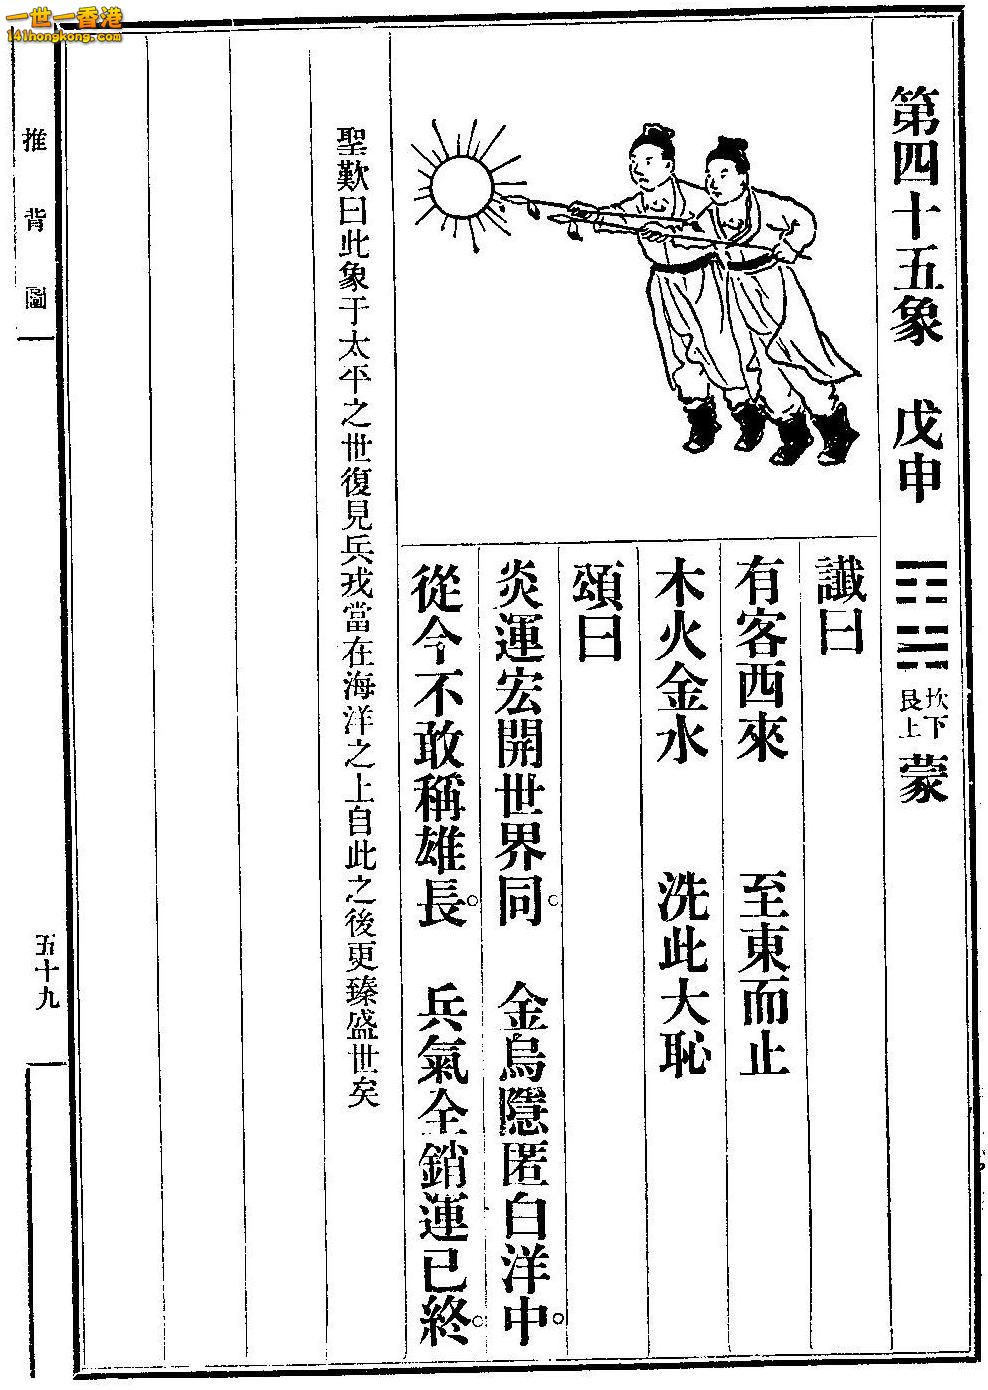 一世一香港
141hongkong.com
第四十五象 戊申 坎下艮上 蒙
讖曰
有客西來 至東而止
木火金水 洗此大恥
頌曰
炎運宏開世界同。 金烏隱匿白洋中。
從今不敢稱雄長。 兵氣全銷運已終。
聖歎曰此象于太平之世復見兵戎當在海洋之上自此之後更臻盛世矣
推背圖
五十九